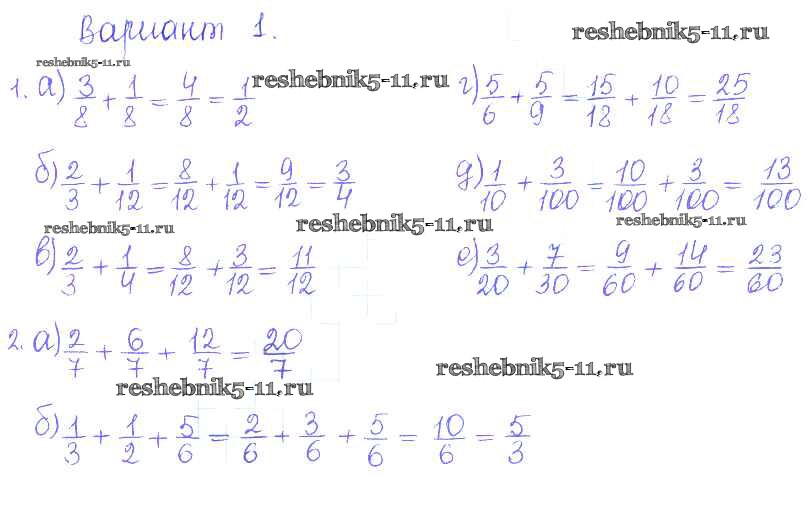 Вариант 1.
reshebnik5-11.ru
reshebnik5-11.ru
1. а) 3/8 + 1/8 = 4/8 = 1/2
reshebnik5-11.ru
г) 5/6 + 5/9 = 15/18 + 10/18 = 25/18
б) 2/3 + 1/12 = 8/12 + 1/12 = 9/12 = 3/4
д) 1/10 + 3/100 = 10/100 + 3/100 = 13/100
reshebnik5-11.ru
reshebnik5-11.ru
reshebnik5-11.ru
в) 2/3 + 1/4 = 8/12 + 3/12 = 11/12
е) 3/20 + 7/30 = 9/60 + 14/60 = 23/60
2. а) 2/7 + 6/7 + 12/7 = 20/7
reshebnik5-11.ru
reshebnik5-11.ru
б) 1/3 + 1/2 + 5/6 = 2/6 + 3/6 + 5/6 = 10/6 = 5/3